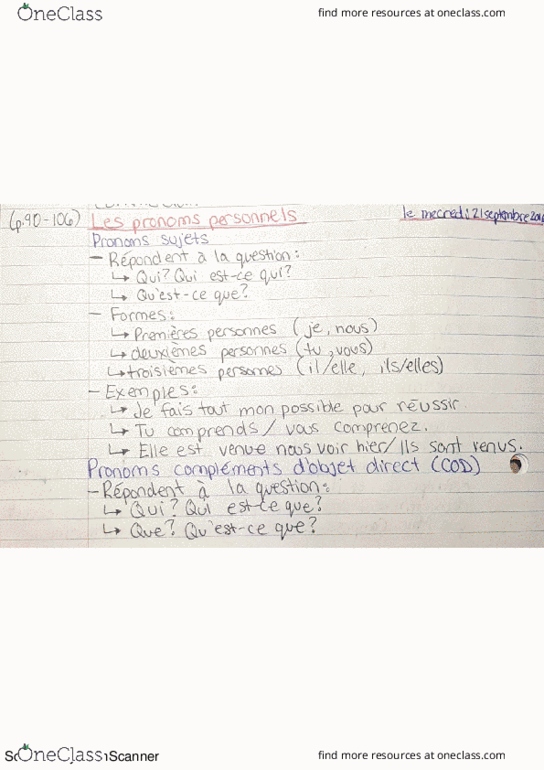 OneClass
find more resources at oneclass.com
(p.90-106) Les pronoms personnels le mecredi 21 septembre
Pronoms sujets
- Répondent à la question:
↳ Qui? Qui est-ce qui?
↳ Qu'est-ce que?
- Formes:
↳ Premières personnes (je, nous)
↳ deuxièmes personnes (tu, vous)
↳ troisièmes personnes (il/elle, ils/elles)
- Exemples:
↳ Je fais tout mon possible pour réussir.
↳ Tu comprends / vous comprenez.
↳ Elle est venue nous voir hier/ Ils sont venus.
Pronoms compléments d'objet direct (COD)
- Répondent à la question:
↳ Qui? Qui est-ce que?
↳ Que? Qu'est-ce que?
OneClass
Scanner
find more resources at oneclass.com